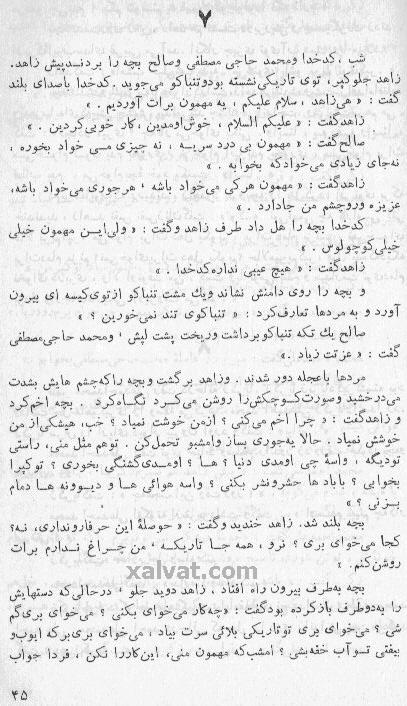 ۷
شب ، کدخدا ومحمد حاجی مصطفی وصالح بچه را بردند پیش زاهد.
زاهد جلو کپر، توی تاریکی نشسته بود و تنباکو می جوید. کدخدا باصدای بلند
گفت : « هی زاهد ، سلام علیکم ، یه مهمون برات آوردیم . »
زاهد گفت : « علیکم السلام ، خوش اومدین ، کار خوبی کردین . »
صالح گفت : « مهمون بی درد سریه ، نه چیزی مـی خواد بخوره ،
نه جای زیادی می خواد که بخوابه . »
زاهد گفت : « مهمون هر کی می خواد باشه ، هرجوری می خواد باشه،
عزیزه وروچشم من جا دارد . »
کدخدا بچه را هل داد طرف زاهد وگفت : « ولی ایـن مهمون خیلی
خیلی کوچولوس . »
زاهد گفت : « هیچ عیبی نداره کدخدا . »
و بچه را روی دامنش نشاند ویك مشت تنباکو از توی کیسه ای بیرون
آورد و به مردها تعارف کرد : « تنباکوی تند نمی خورین ؟ »
صالح یك تکه تنباکو برداشت وریخت پشت لپش ، ومحمد حاجی مصطفی
گفت : « عزتت زیاد .»
مردها باعجله دور شدند . وزاهد برگشت وبچه را که چشم هایش بشدت
می درخشید وصورت کـوچکش را روشن می کـرد نگـاه کرد . بچه اخم کرد
و زاهد گفت : « چرا اخم می کنی ؟ ازمن خوشت نمیاد ؟ خب، هیشکی از من
خوشش نمیاد . حالا یه جوری بساز وامشبو تحمل کن . توهم مثل منی، راستی
تودیگه ، واسۀ چی اومدی دنیا ؟ هـا ؟ اومـدی گشنگی بخوری ؟ توکپرا
بخوابی ؟ با بادها حشرونشر بکنی ؟ واسه هوائی هـا و دیـوونه هـا دمام
بـزنی ؟ »
بچه بلند شد. زاهد خندید وگفت : « حوصلۀ این حرفارو نداری، نه؟
کجا می خوای بری ؟ نرو ، همه جـا تاریکـه ، من چـراغ نـدارم برات
روشن کنم. »
بچه به طرف بیرون راه افتاد ، زاهد دوید جلو ، درحالی که دستهایش
را به دو طرف باز کرده بود گفت : « چه کار می خوای بکنی ؟ می خوای بری گم
شی ؟ می خوای بری تو تاریکی بلائی سرت بیاد ، می خوای بری بر که ایوب و
بیفتی تو آب خفه بشی ؟ امشب که مهمون منی، این کار را نکن ، فردا جواب
xalvat.com
۴۵